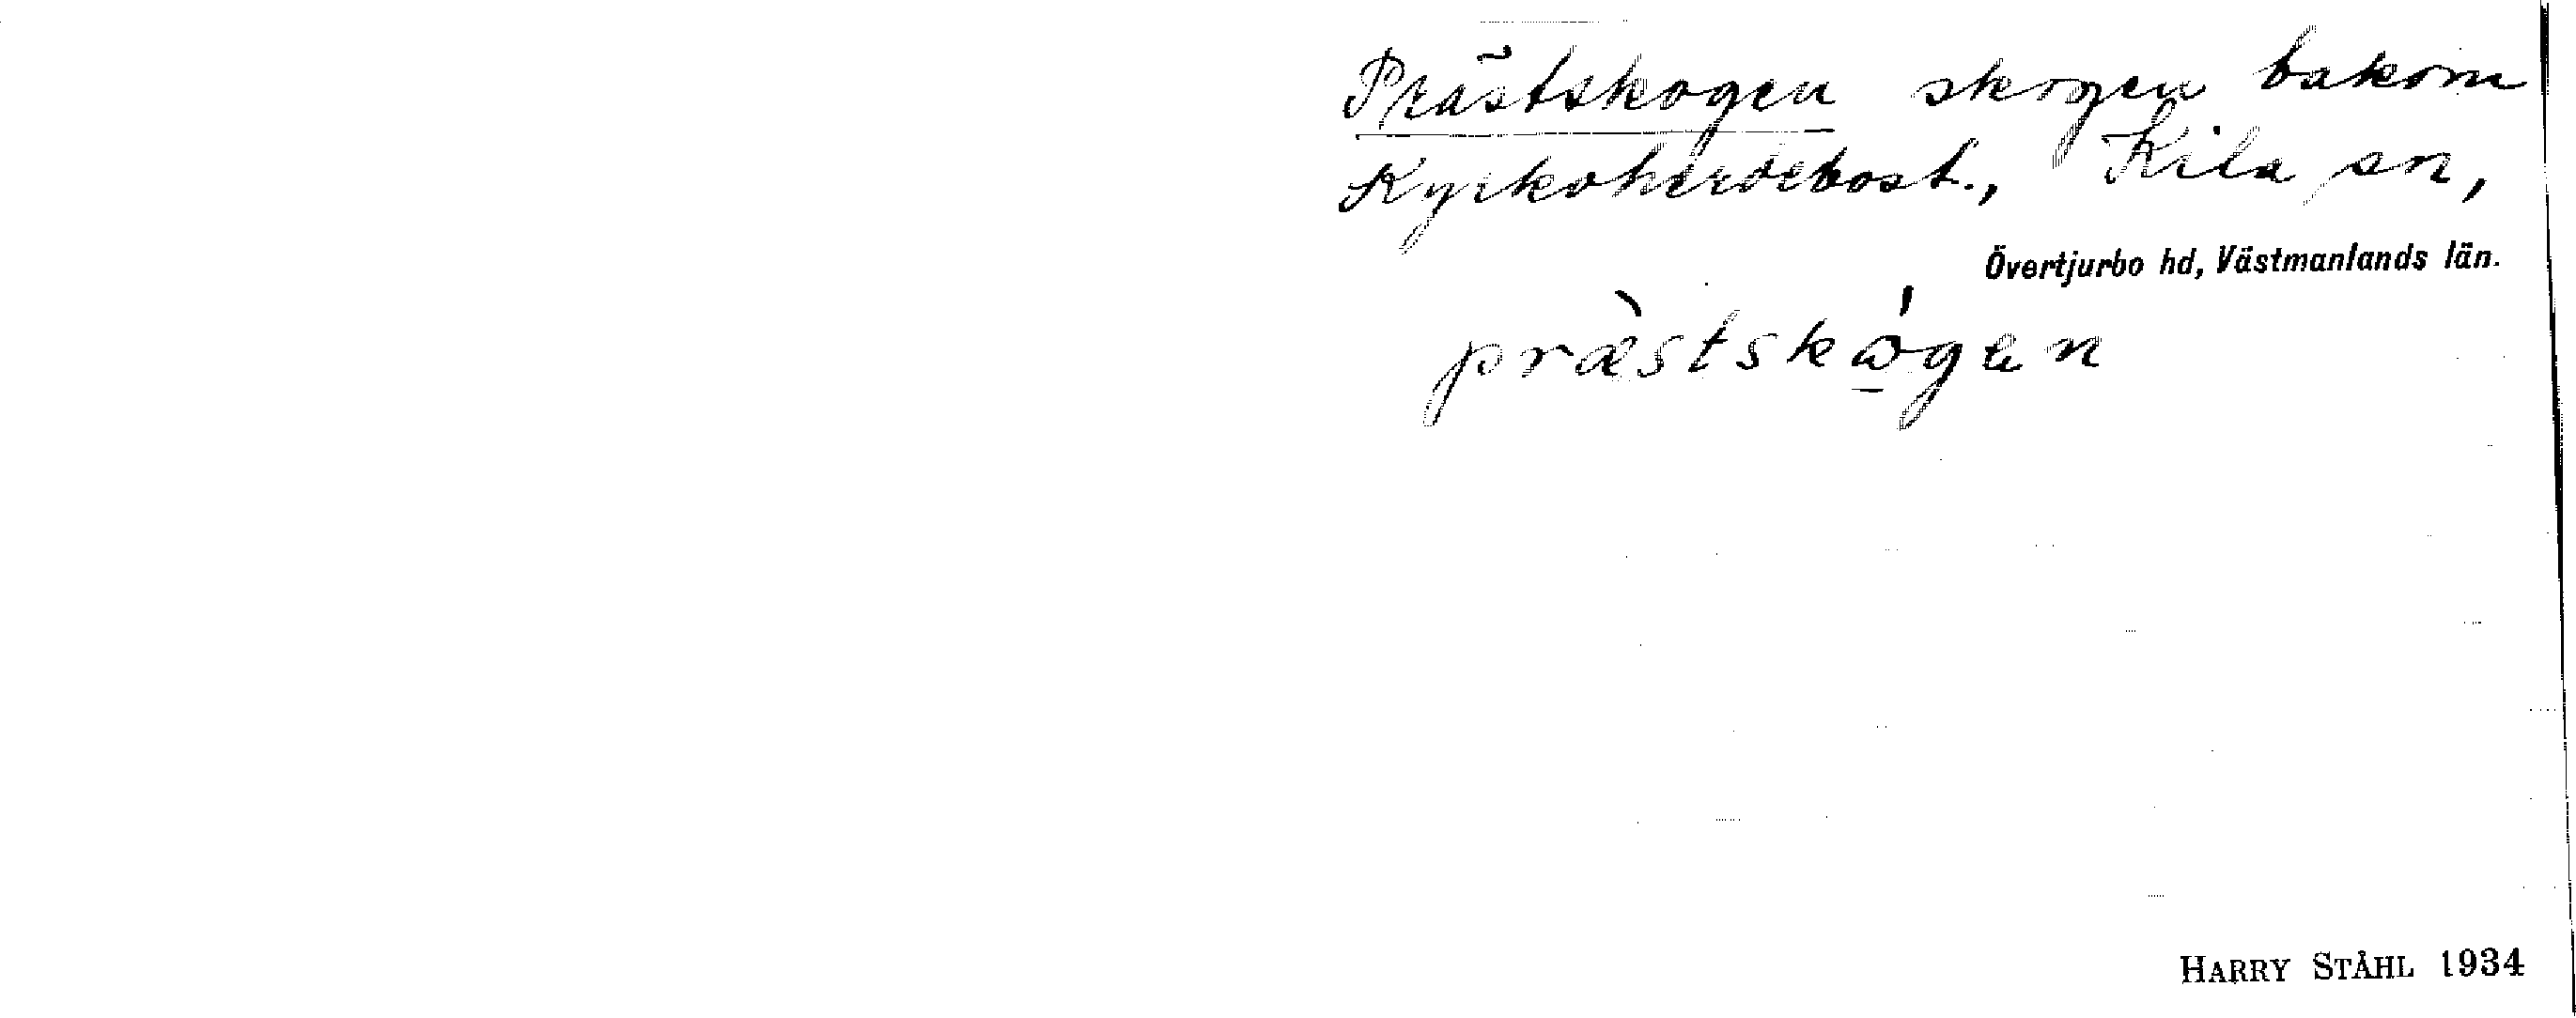 Prästskogen skogen bakom
Kyrkoherdebost., Kila sn,
Övertjurbo hd, Västmanlands län.
præ̀stskώ̲gen
HARRY STÅHL 1934